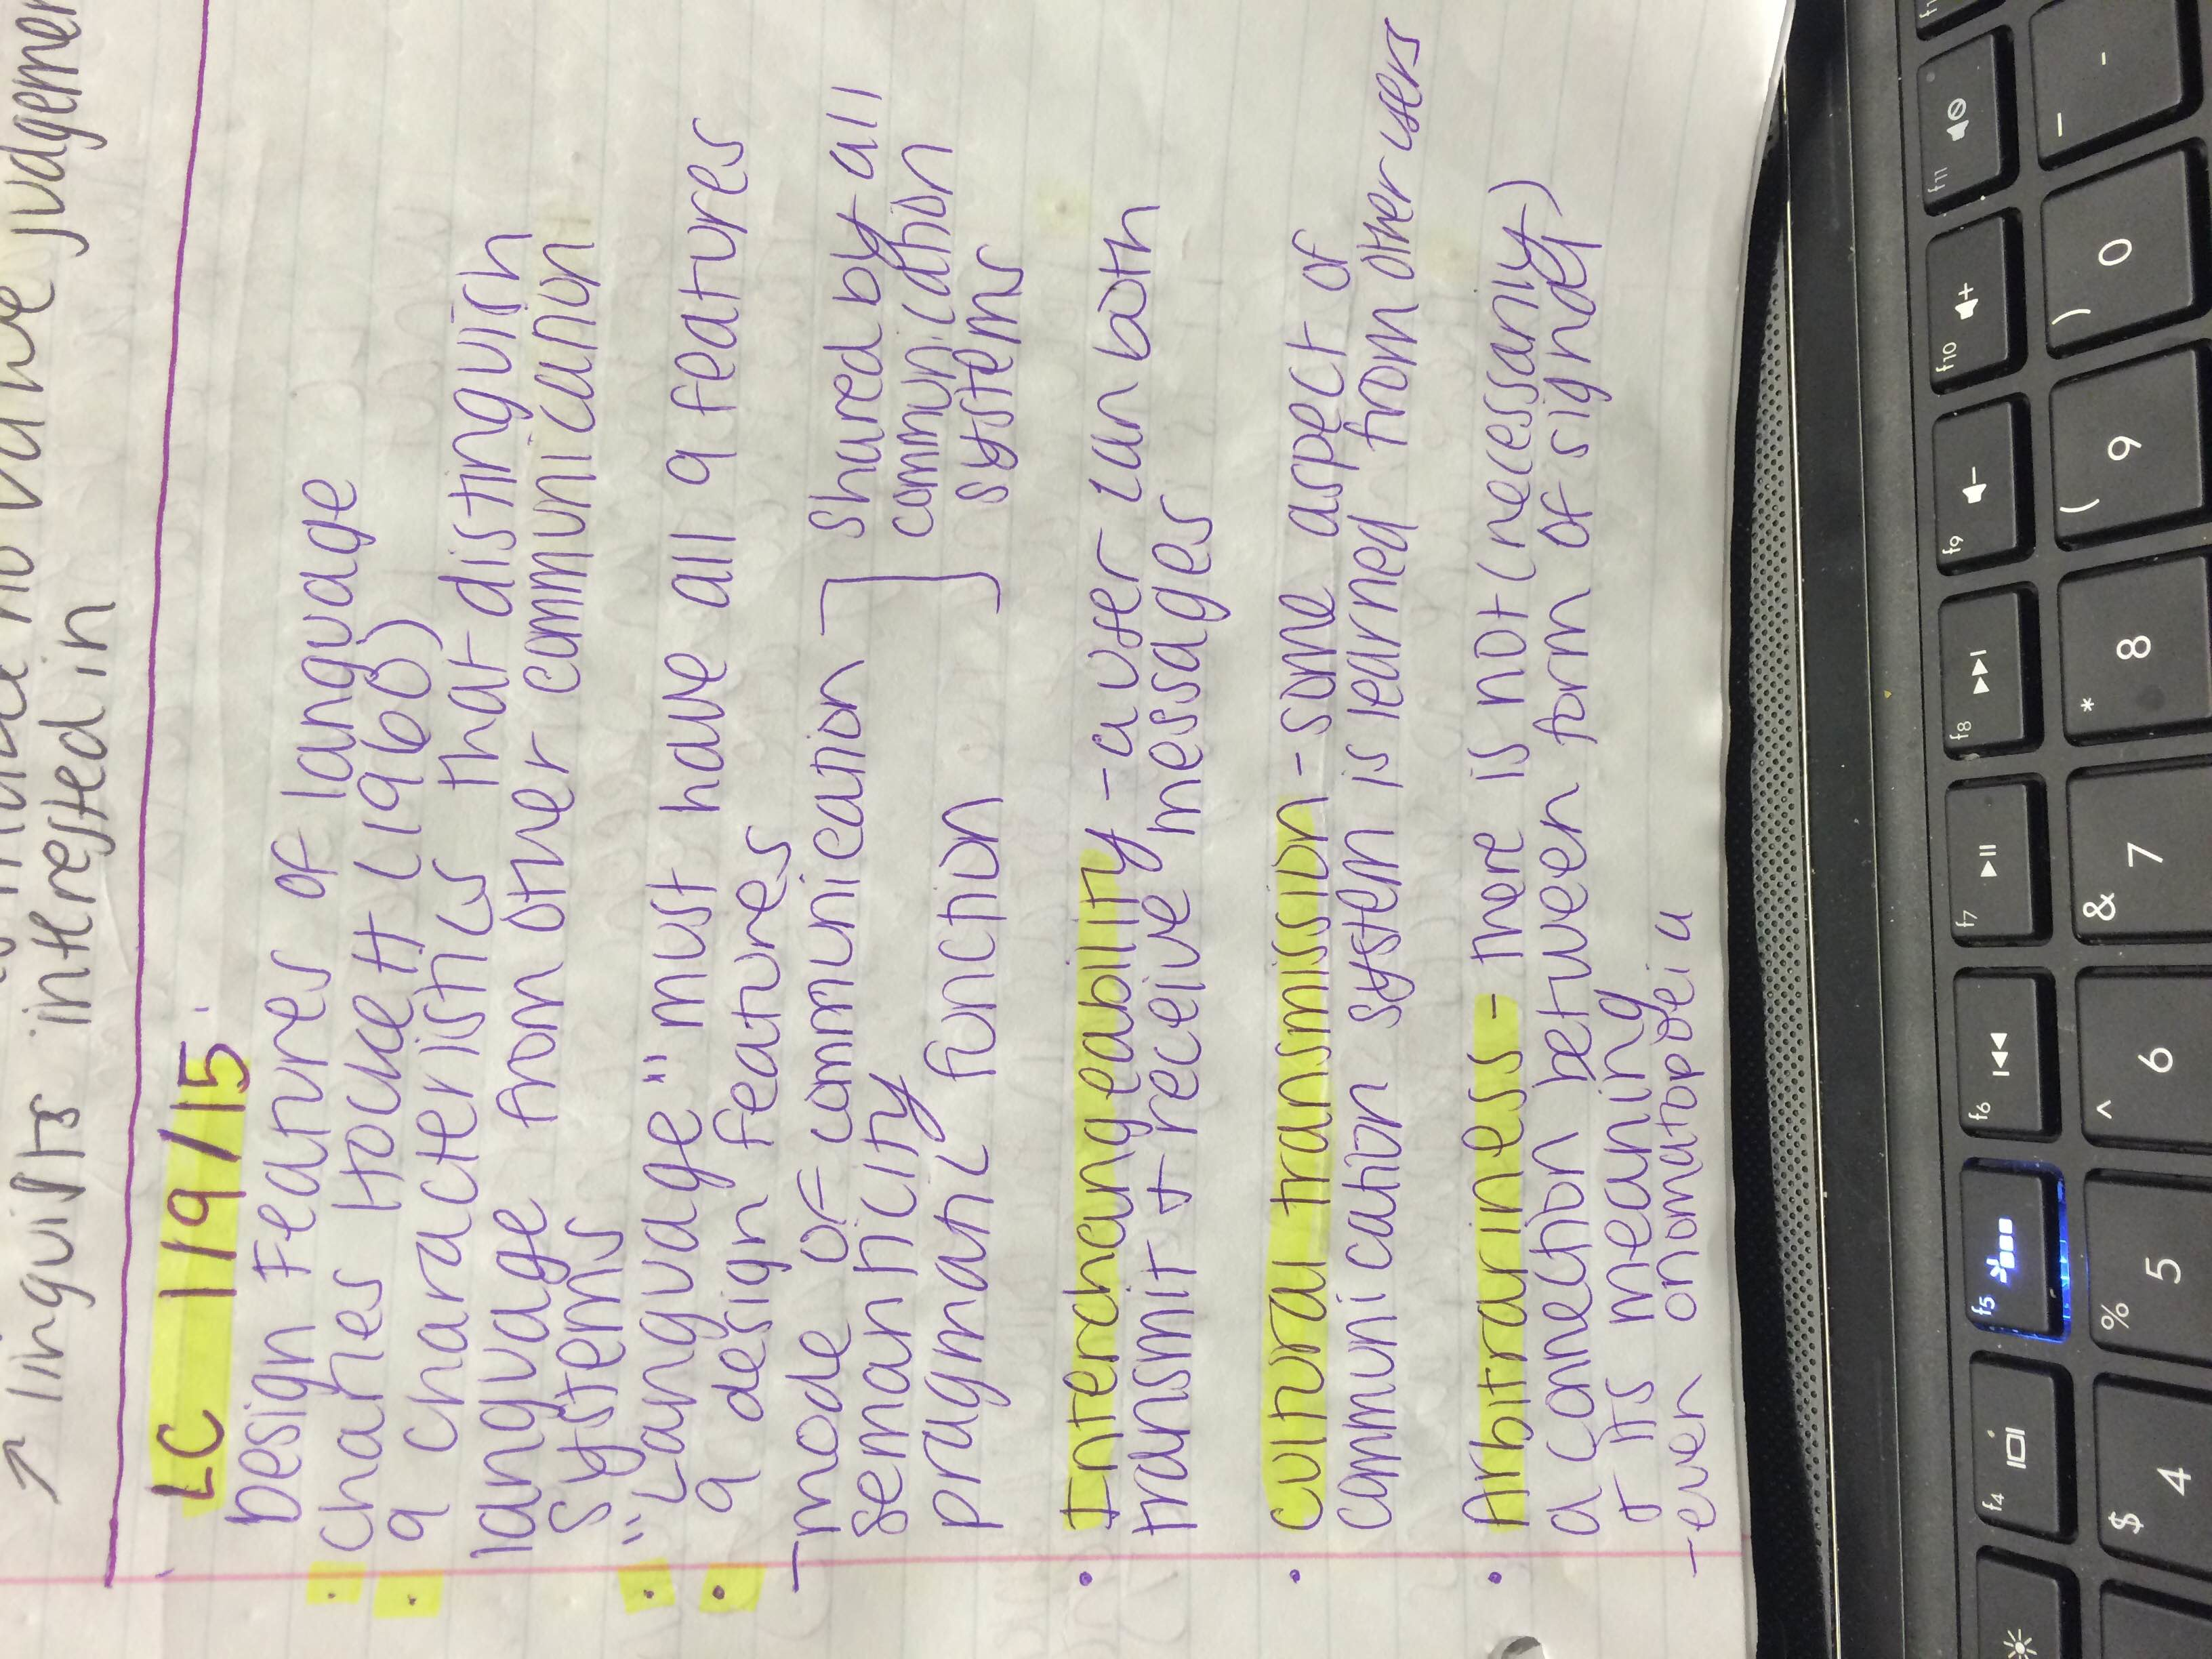 no value judgemen
→ linguists intrested in
LC 1/9/15
Design Features of language
• Charles Hockett (1960)
• 9 characteristics that distinguish
language from other communication
systems
• "Language" must have all 9 features
• 9 design features
- mode of communication
semanticity
pragmatic function
Shared by all
communication
systems
• Interchangeability - a user can both
transmit + receive messages
• cultural transmission - some aspect of
communication system is learned from other users
• Arbitrariness - there is not (necessarily
a connection between form of signal)
+ its meaning
- even onomatopoeia
f4
f5
f6
f7
f8
f9
f10
f11
$ 4
% 5
^ 6
& 7
* 8
( 9
) 0
_ -